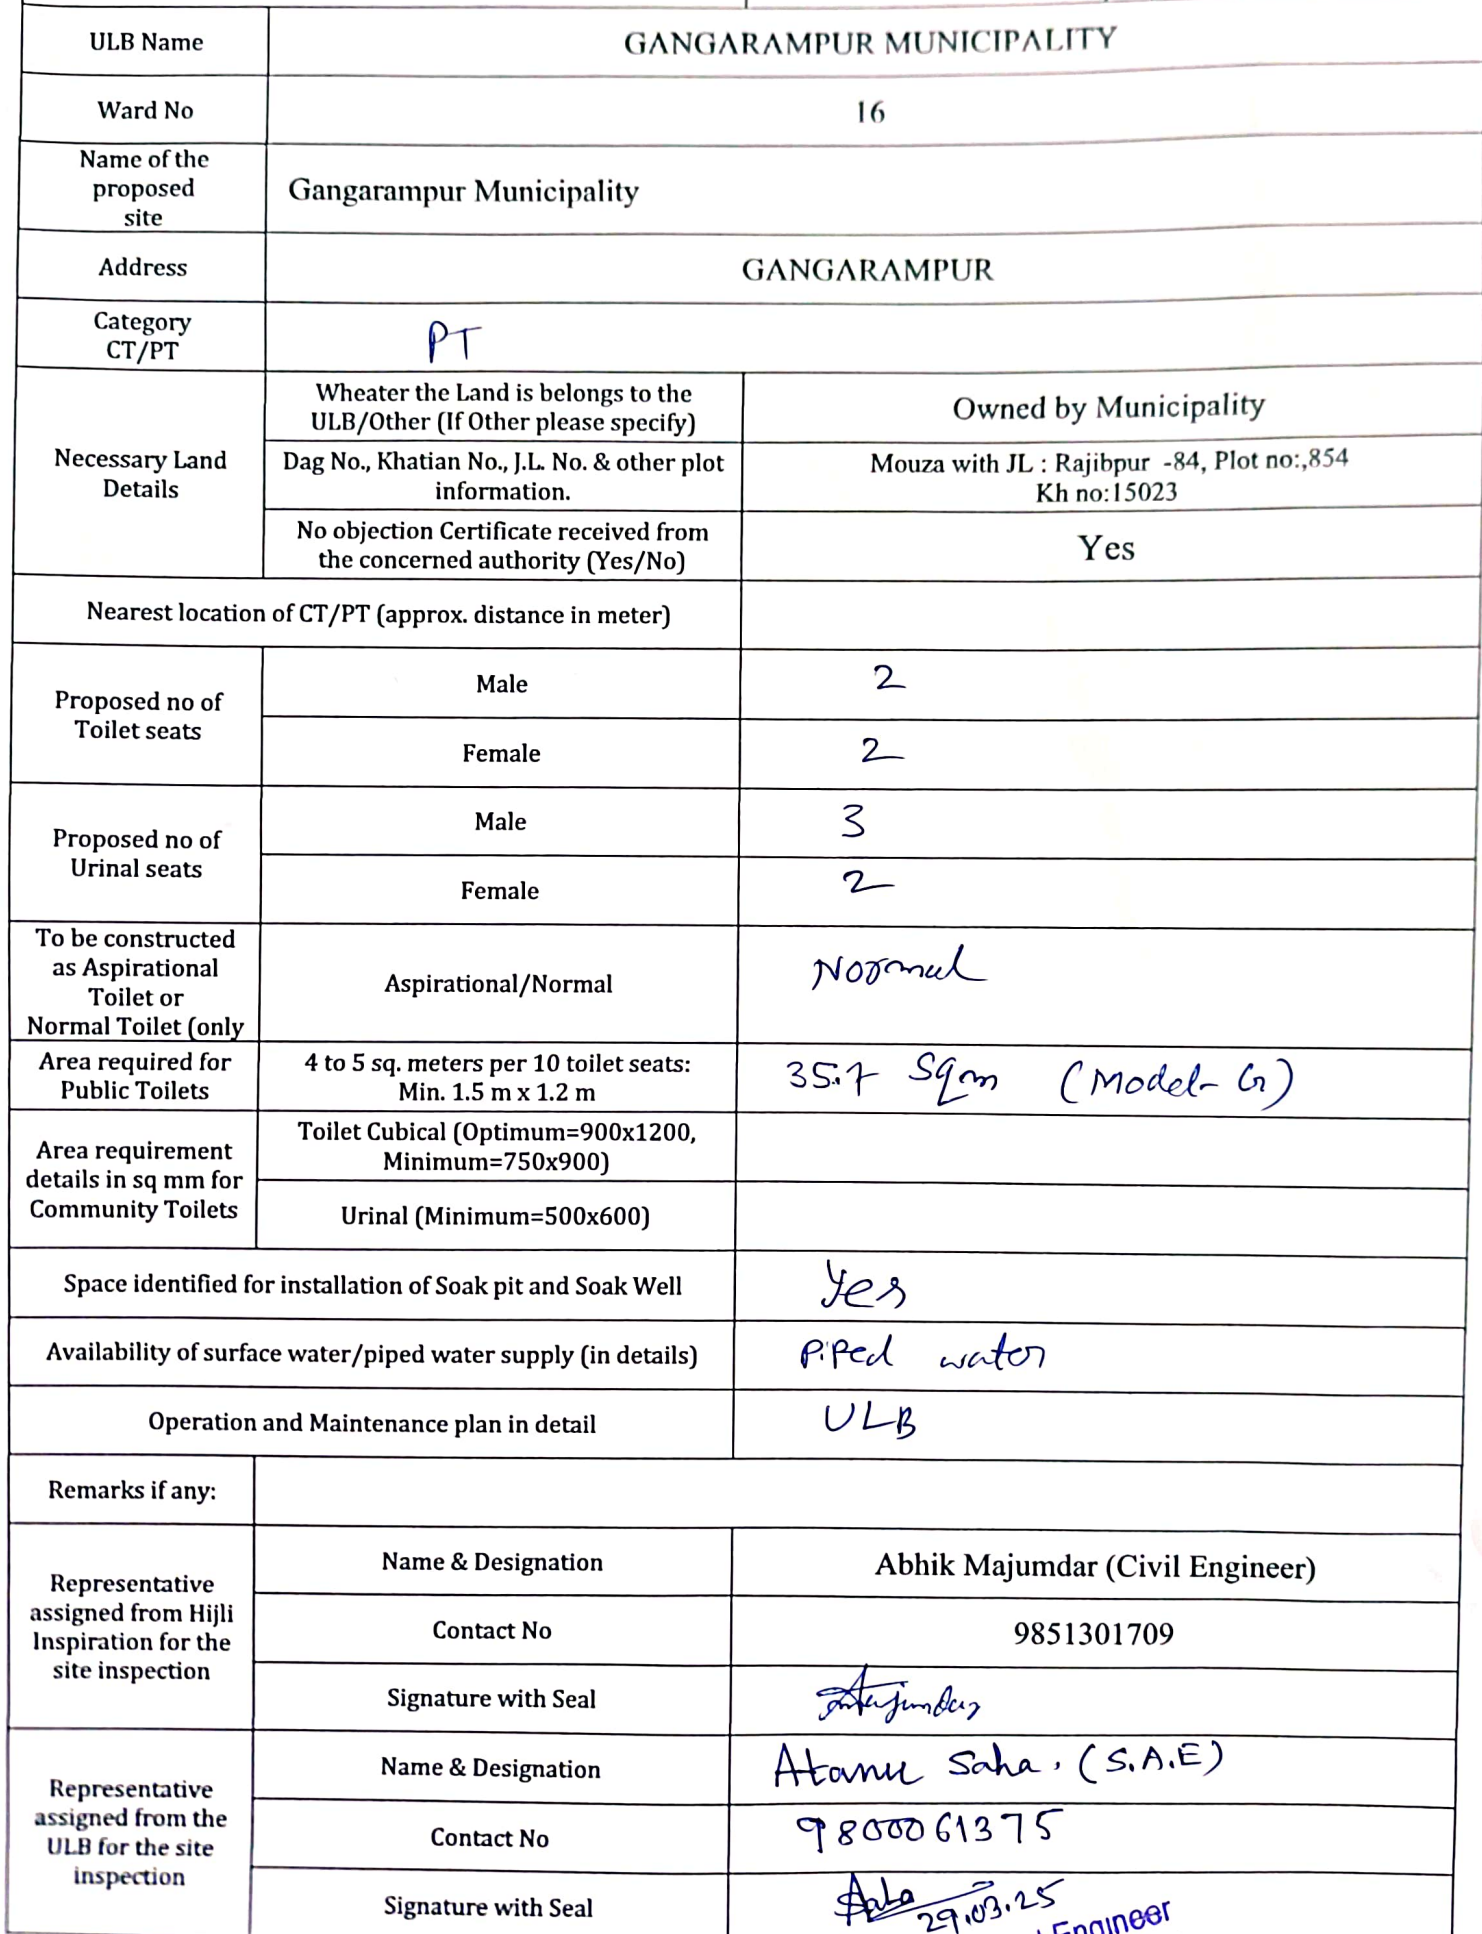 ULB Name
GANGARAMPUR MUNICIPALITY
Ward No
16
Name of the
proposed
site
Gangarampur Municipality
Address
GANGARAMPUR
Category
CT/PT
PT
Necessary Land
Details
Wheater the Land is belongs to the
ULB/Other (If Other please specify)
Owned by Municipality
Dag No., Khatian No., J.L. No. & other plot
information.
Mouza with JL : Rajibpur -84, Plot no:,854
Kh no:15023
No objection Certificate received from
the concerned authority (Yes/No)
Yes
Nearest location of CT/PT (approx. distance in meter)
Proposed no of
Toilet seats
Male
2
Female
2
Proposed no of
Urinal seats
Male
3
Female
2
To be constructed
as Aspirational
Toilet or
Normal Toilet (only
Aspirational/Normal
Normal
Area required for
Public Toilets
4 to 5 sq. meters per 10 toilet seats:
Min. 1.5 m x 1.2 m
35.7 Sqm (Model- G)
Area requirement
details in sq mm for
Community Toilets
Toilet Cubical (Optimum=900x1200,
Minimum=750x900)
Urinal (Minimum=500x600)
Space identified for installation of Soak pit and Soak Well
Yes
Availability of surface water/piped water supply (in details)
Piped water
Operation and Maintenance plan in detail
ULB
Remarks if any:
Representative
assigned from Hijli
Inspiration for the
site inspection
Name & Designation
Abhik Majumdar (Civil Engineer)
Contact No
9851301709
Signature with Seal
Majumdar
Representative
assigned from the
ULB for the site
inspection
Name & Designation
Atanu Saha. (S.A.E)
Contact No
9800061375
Signature with Seal
Saha
29.03.25
Engineer